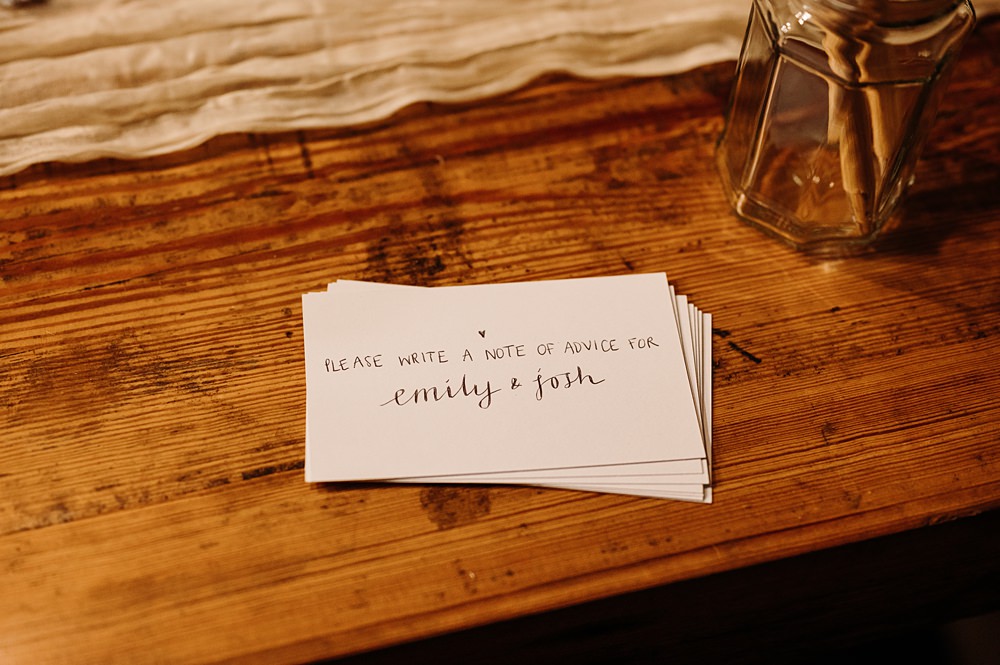 PLEASE WRITE A NOTE OF ADVICE FOR
emily & josh